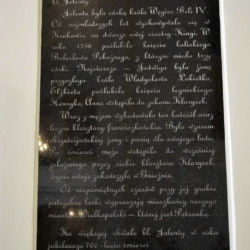 Bł. Jolenty
Jolenta była córką króla Węgier Beli IV.
Od najmłodszych lat wychowywała się w
Krakowie na dworze swej siostry Kingi. W
roku 1256 poślubiła księcia kaliskiego
Bolesława Pobożnego, z którym miała trzy
córki. Najstarsza – Jadwiga była żoną
przyszłego króla Władysława Łokietka,
Elżbieta poślubiła księcia legnickiego
Henryka, Anna wstąpiła do zakonu Klarysek.
Wraz z mężem wybudowała ten kościół oraz
klasztor franciszkański. Była wzorem
chrześcijańskiej żony i panią dla swojego ludu.
Po śmierci męża wstąpiła do
założonego przez siebie klasztoru Klarysek.
Życie swoje zakończyła w Gnieźnie.
Od niepamiętnych czasów przy jej grobie
łaski wypraszają mieszkańcy naszego
miasta Wielkopolski – której jest Patronką.
Ku większej chwale bł. Jolenty w roku
jubileuszu 700-lecia śmierci